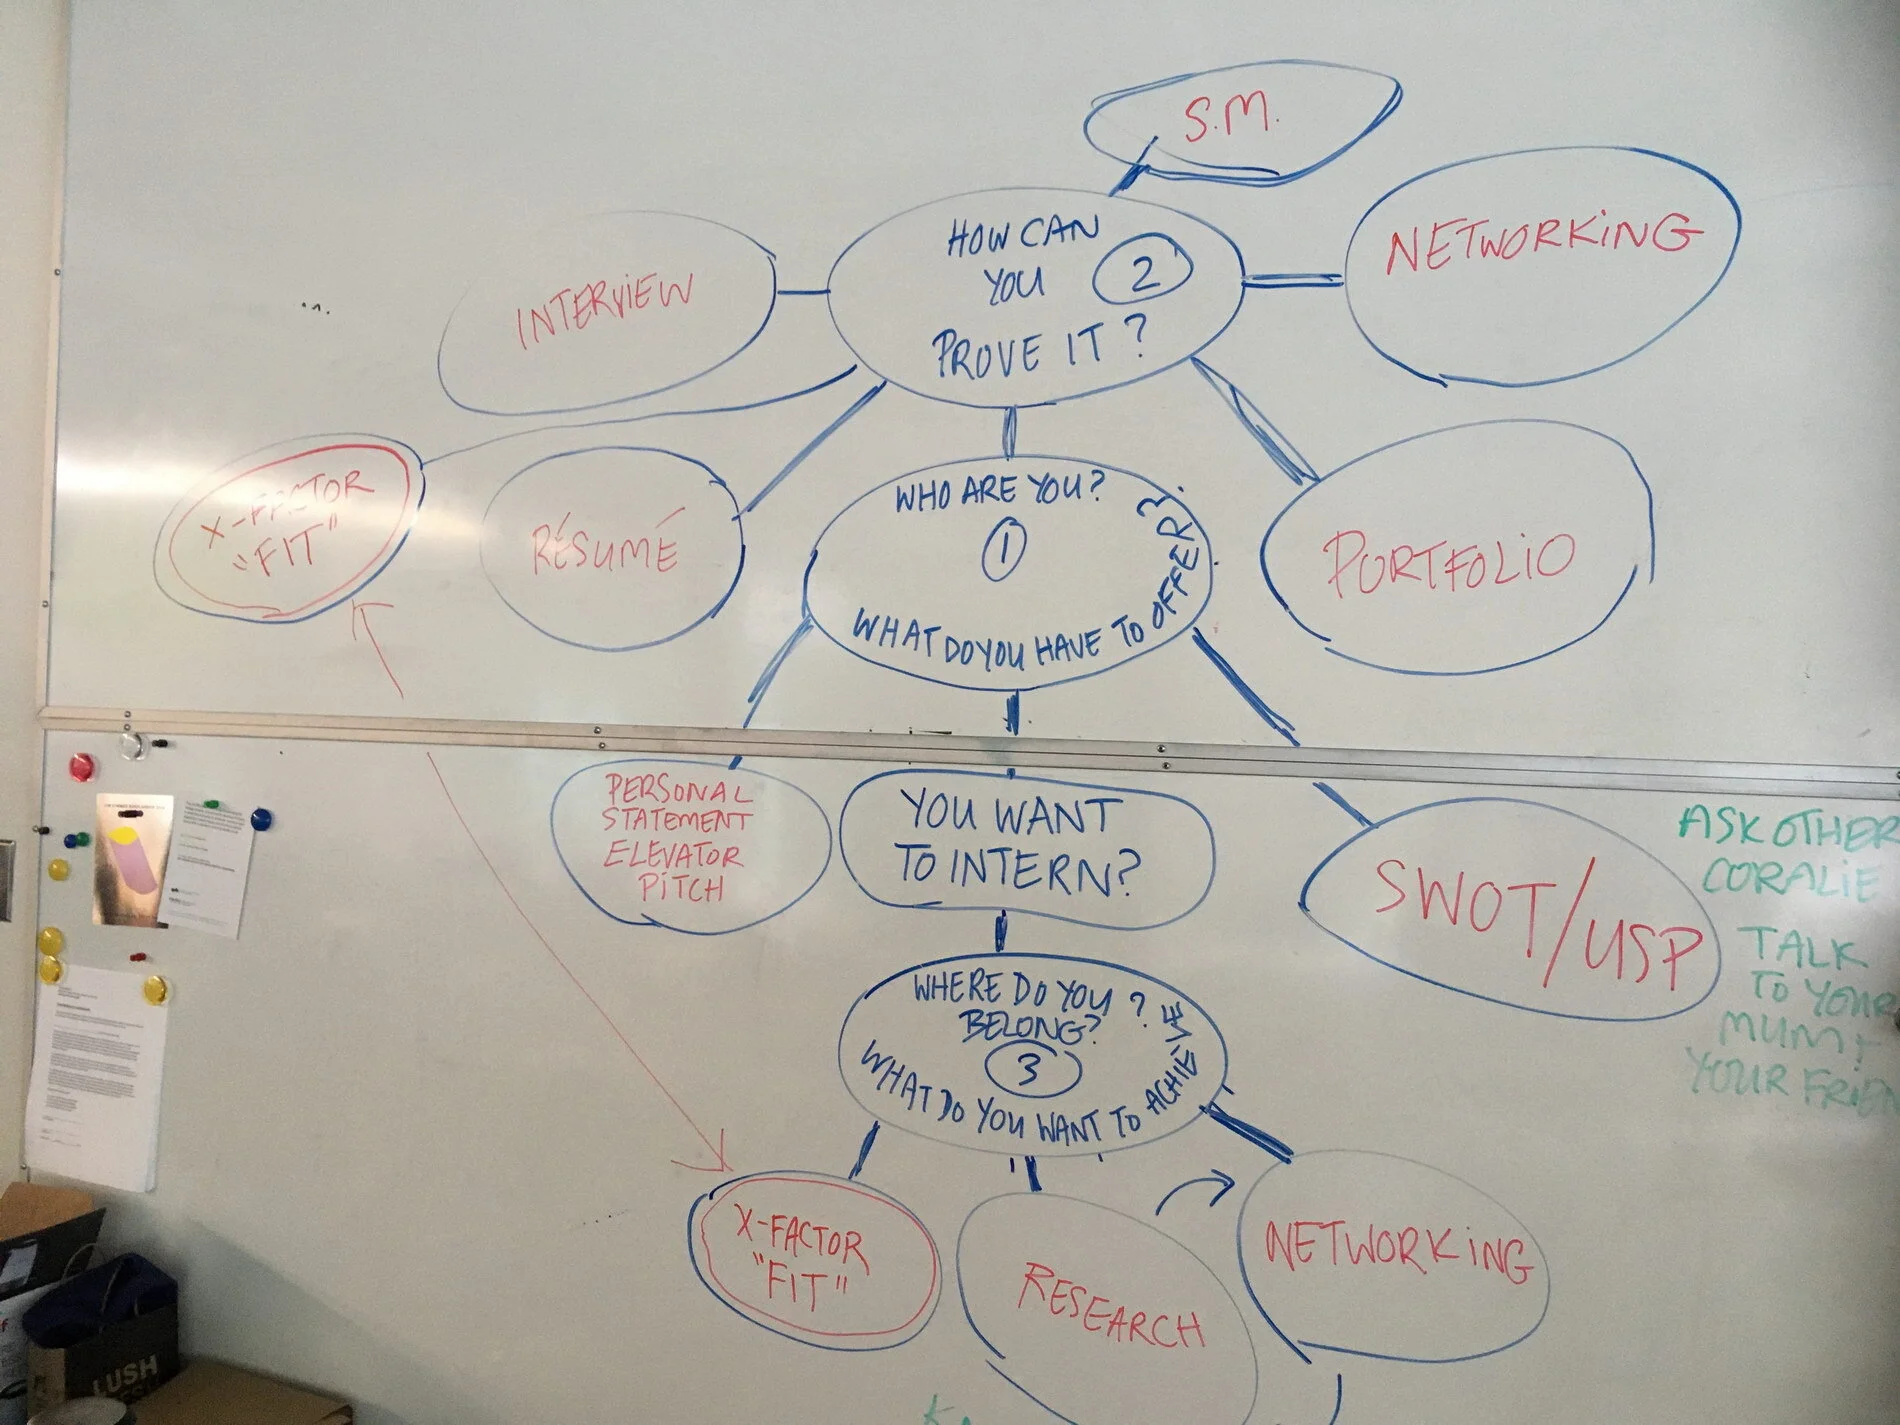 S.M.
HOW CAN
YOU
2
PROVE IT?
NETWORKING
INTERVIEW
X-FACTOR
"FIT"
RÉSUMÉ
WHO ARE YOU?
1
WHAT DO YOU HAVE TO OFFER?
PORTFOLIO
PERSONAL
STATEMENT
ELEVATOR
PITCH
YOU WANT
TO INTERN?
SWOT/USP
ASK OTHER
CORALIE
TALK
TO YOUR
MUM +
YOUR FRIEN
WHERE DO YOU
BELONG?
3
WHAT DO YOU WANT TO ACHIEVE?
X-FACTOR
"FIT"
RESEARCH
NETWORKING
LUSH